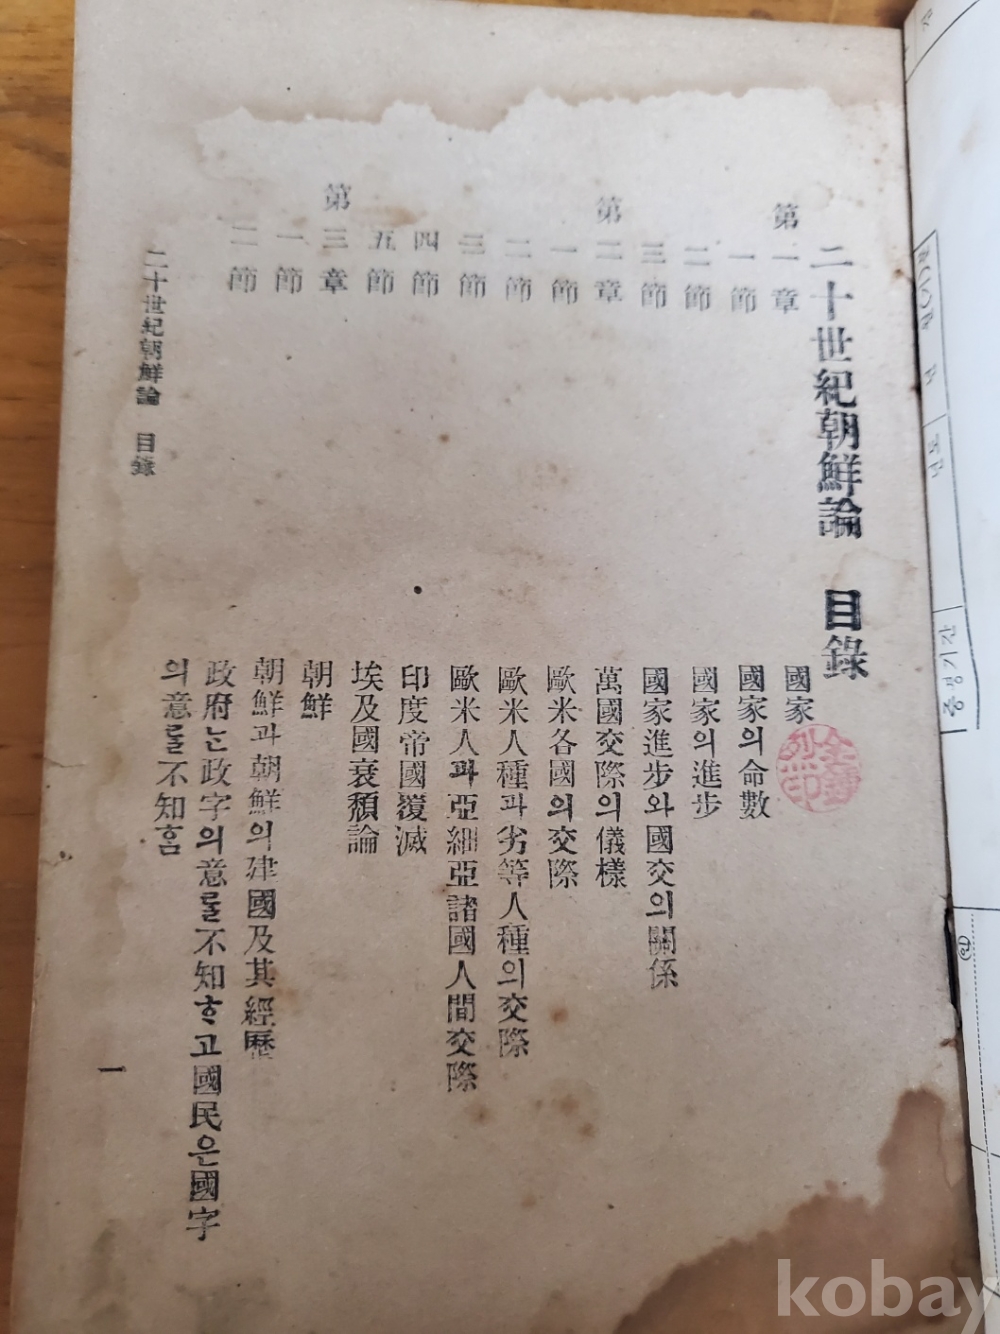 二十世紀朝鮮論 目錄
第一章 國家
一節 國家의命數
二節 國家의進步
三節 國家進步와國交의關係
第二章 萬國交際의儀樣
一節 歐米各國의交際
二節 歐米人種과劣等人種의交際
三節 歐米人과亞細亞諸國人間交際
四節 印度帝國覆滅
五節 埃及國衰頹論
第三章 朝鮮
一節 朝鮮과朝鮮의建國及其經歷
二節 政府는政字의意를不知ᄒᆞ고國民은國字
의意를不知ᄒᆞᆷ
二十世紀朝鮮論 目錄
一
증빙기간
kobay